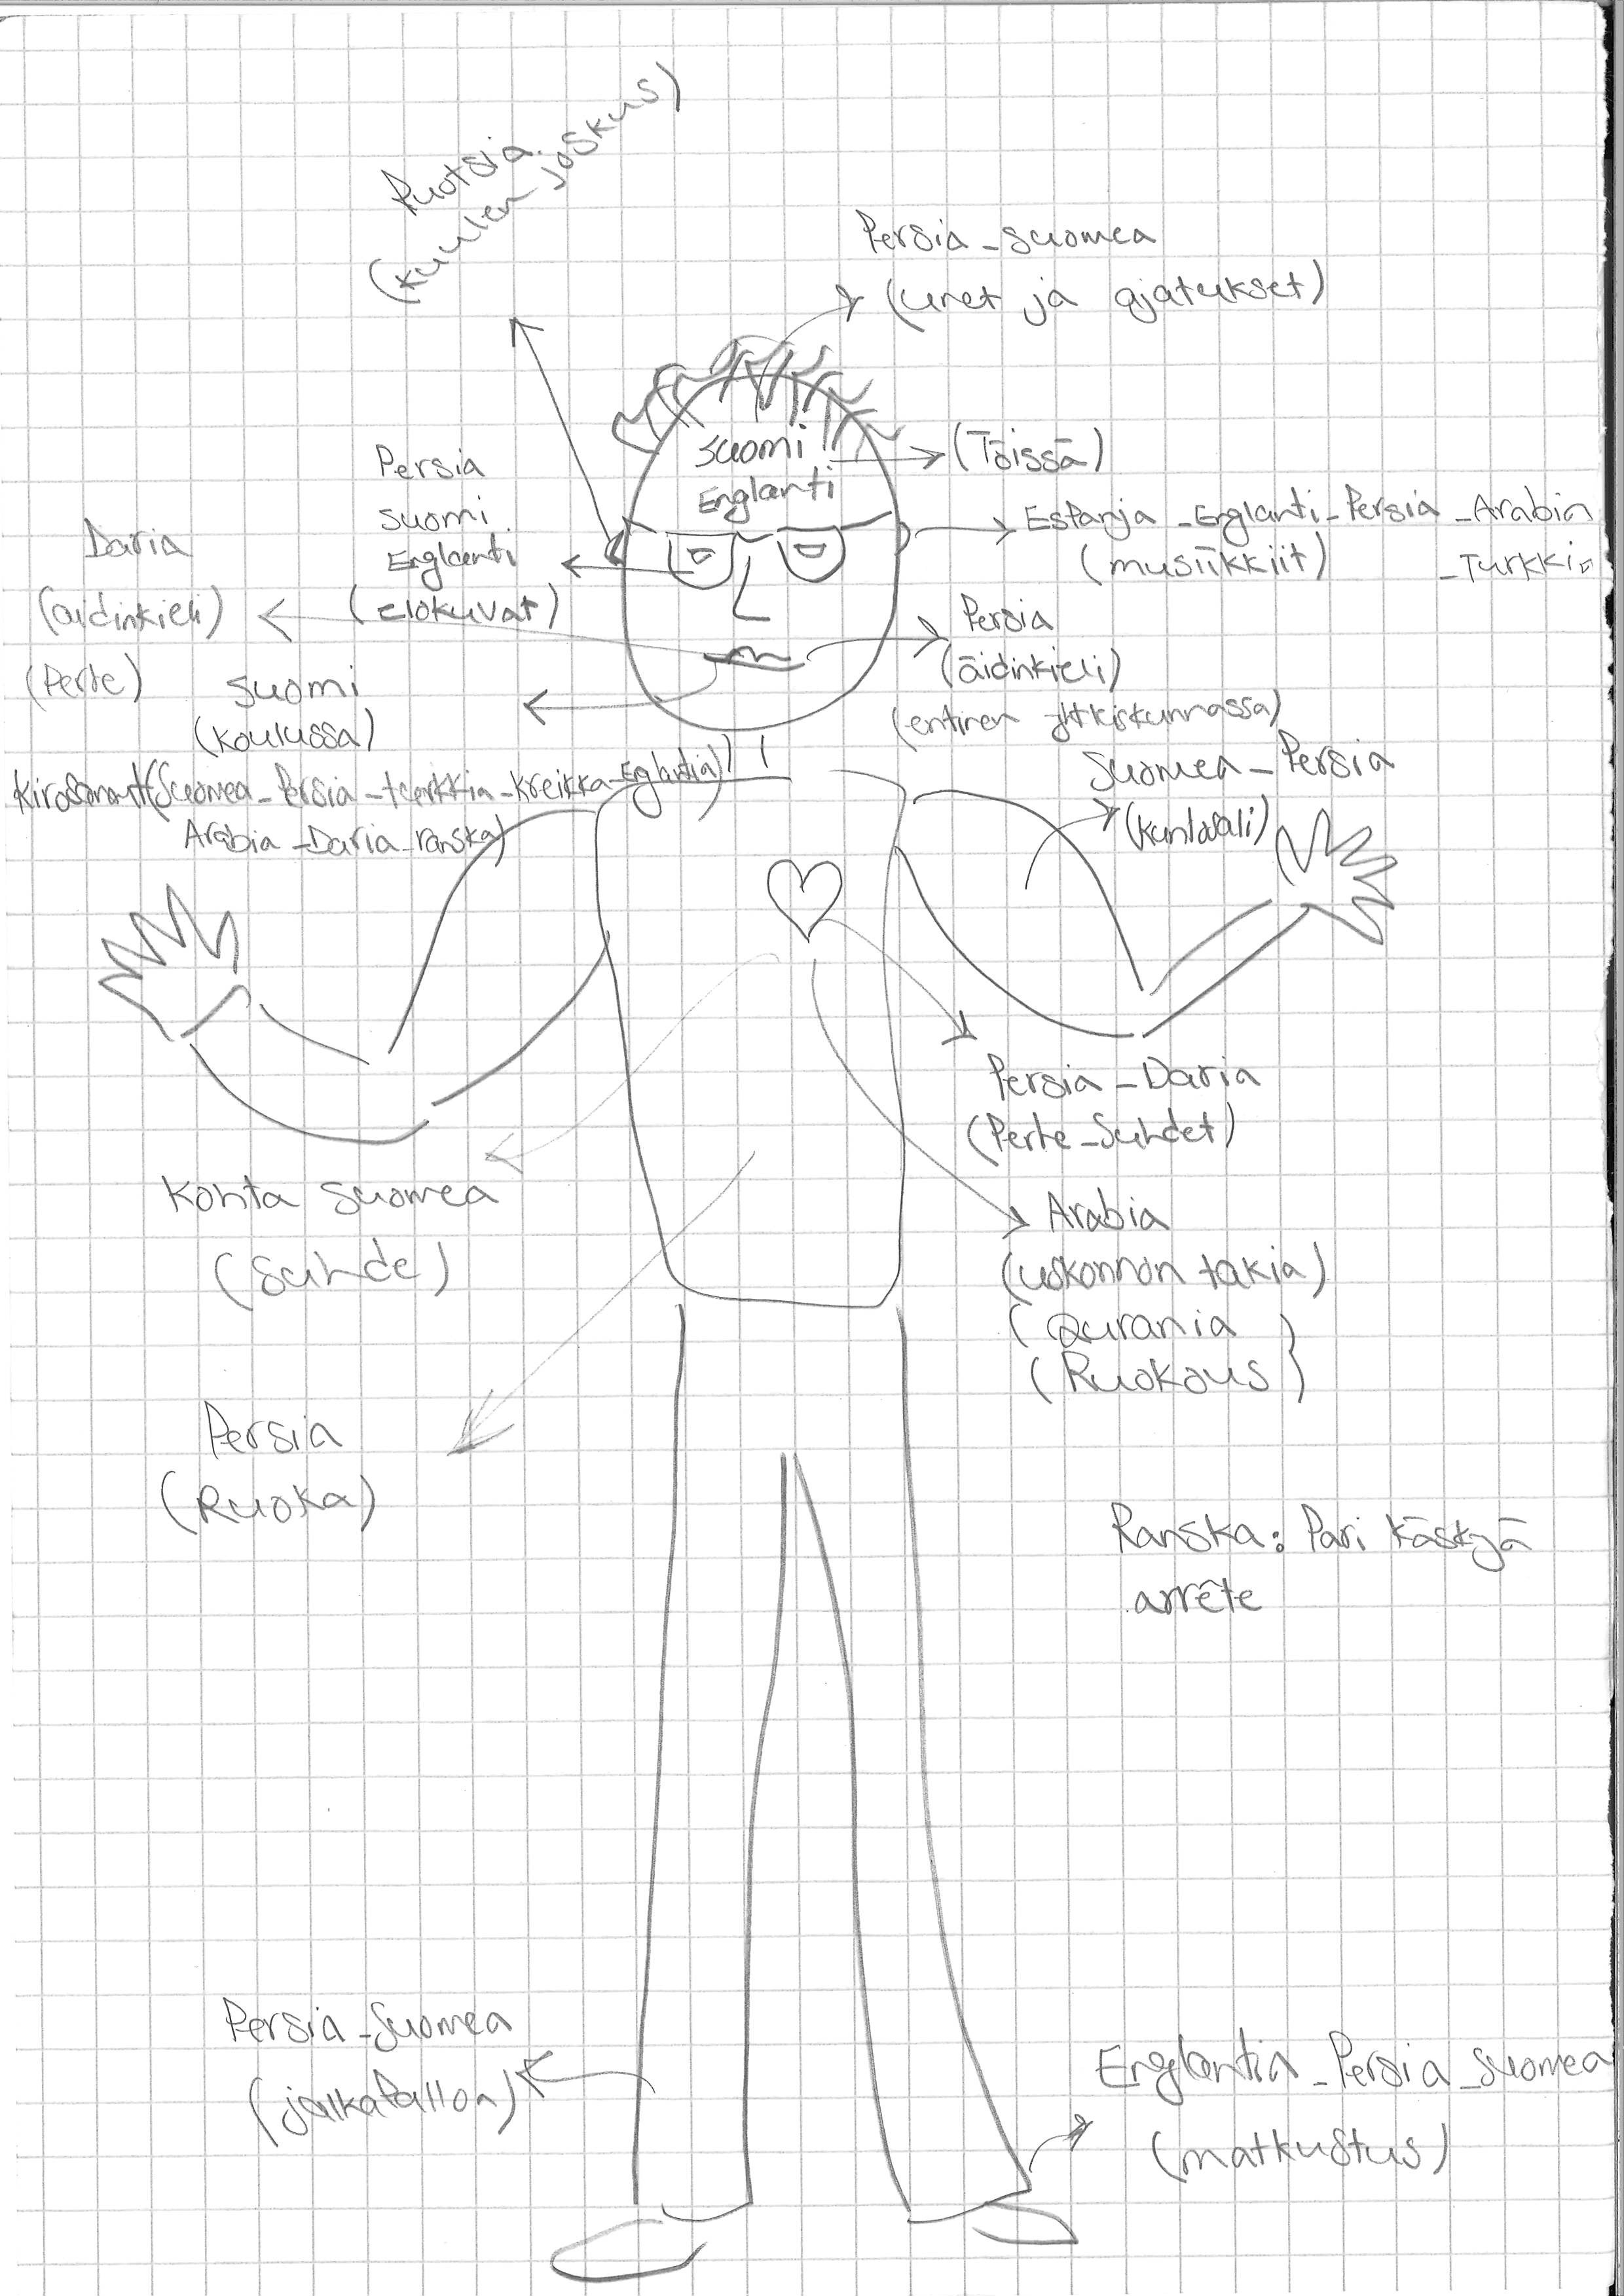 Ruotsia
(kuulen joskus)
Persia - suomea
(unet ja ajatukset)
Suomi
Englanti
(Töissä)
Persia
suomi
Englanti
(elokuvat)
Espanja - Englanti - Persia - Arabia
(musiikkiit) - Turkkia
Daria
(äidinkieli)
(Perhe)
Persia
(äidinkieli)
(entinen yhteiskunnassa)
suomi
(koulussa)
Kirosanat (Suomea - Persia - turkkia - kreikka - Englantia)
Arabia - Daria - ranska)
Suomea - Persia
(kuntosali)
Persia - Daria
(Perhe - Suhdet)
Kohta suomea
(Suhde)
Arabia
(uskonnon takia)
(Qurania
(Ruokous)
Persia
(Ruoka)
Ranska: Pari käskyä
arrête
Persia - Suomea
(jalkapalloa)
Englantia - Persia - suomea
(matkustus)